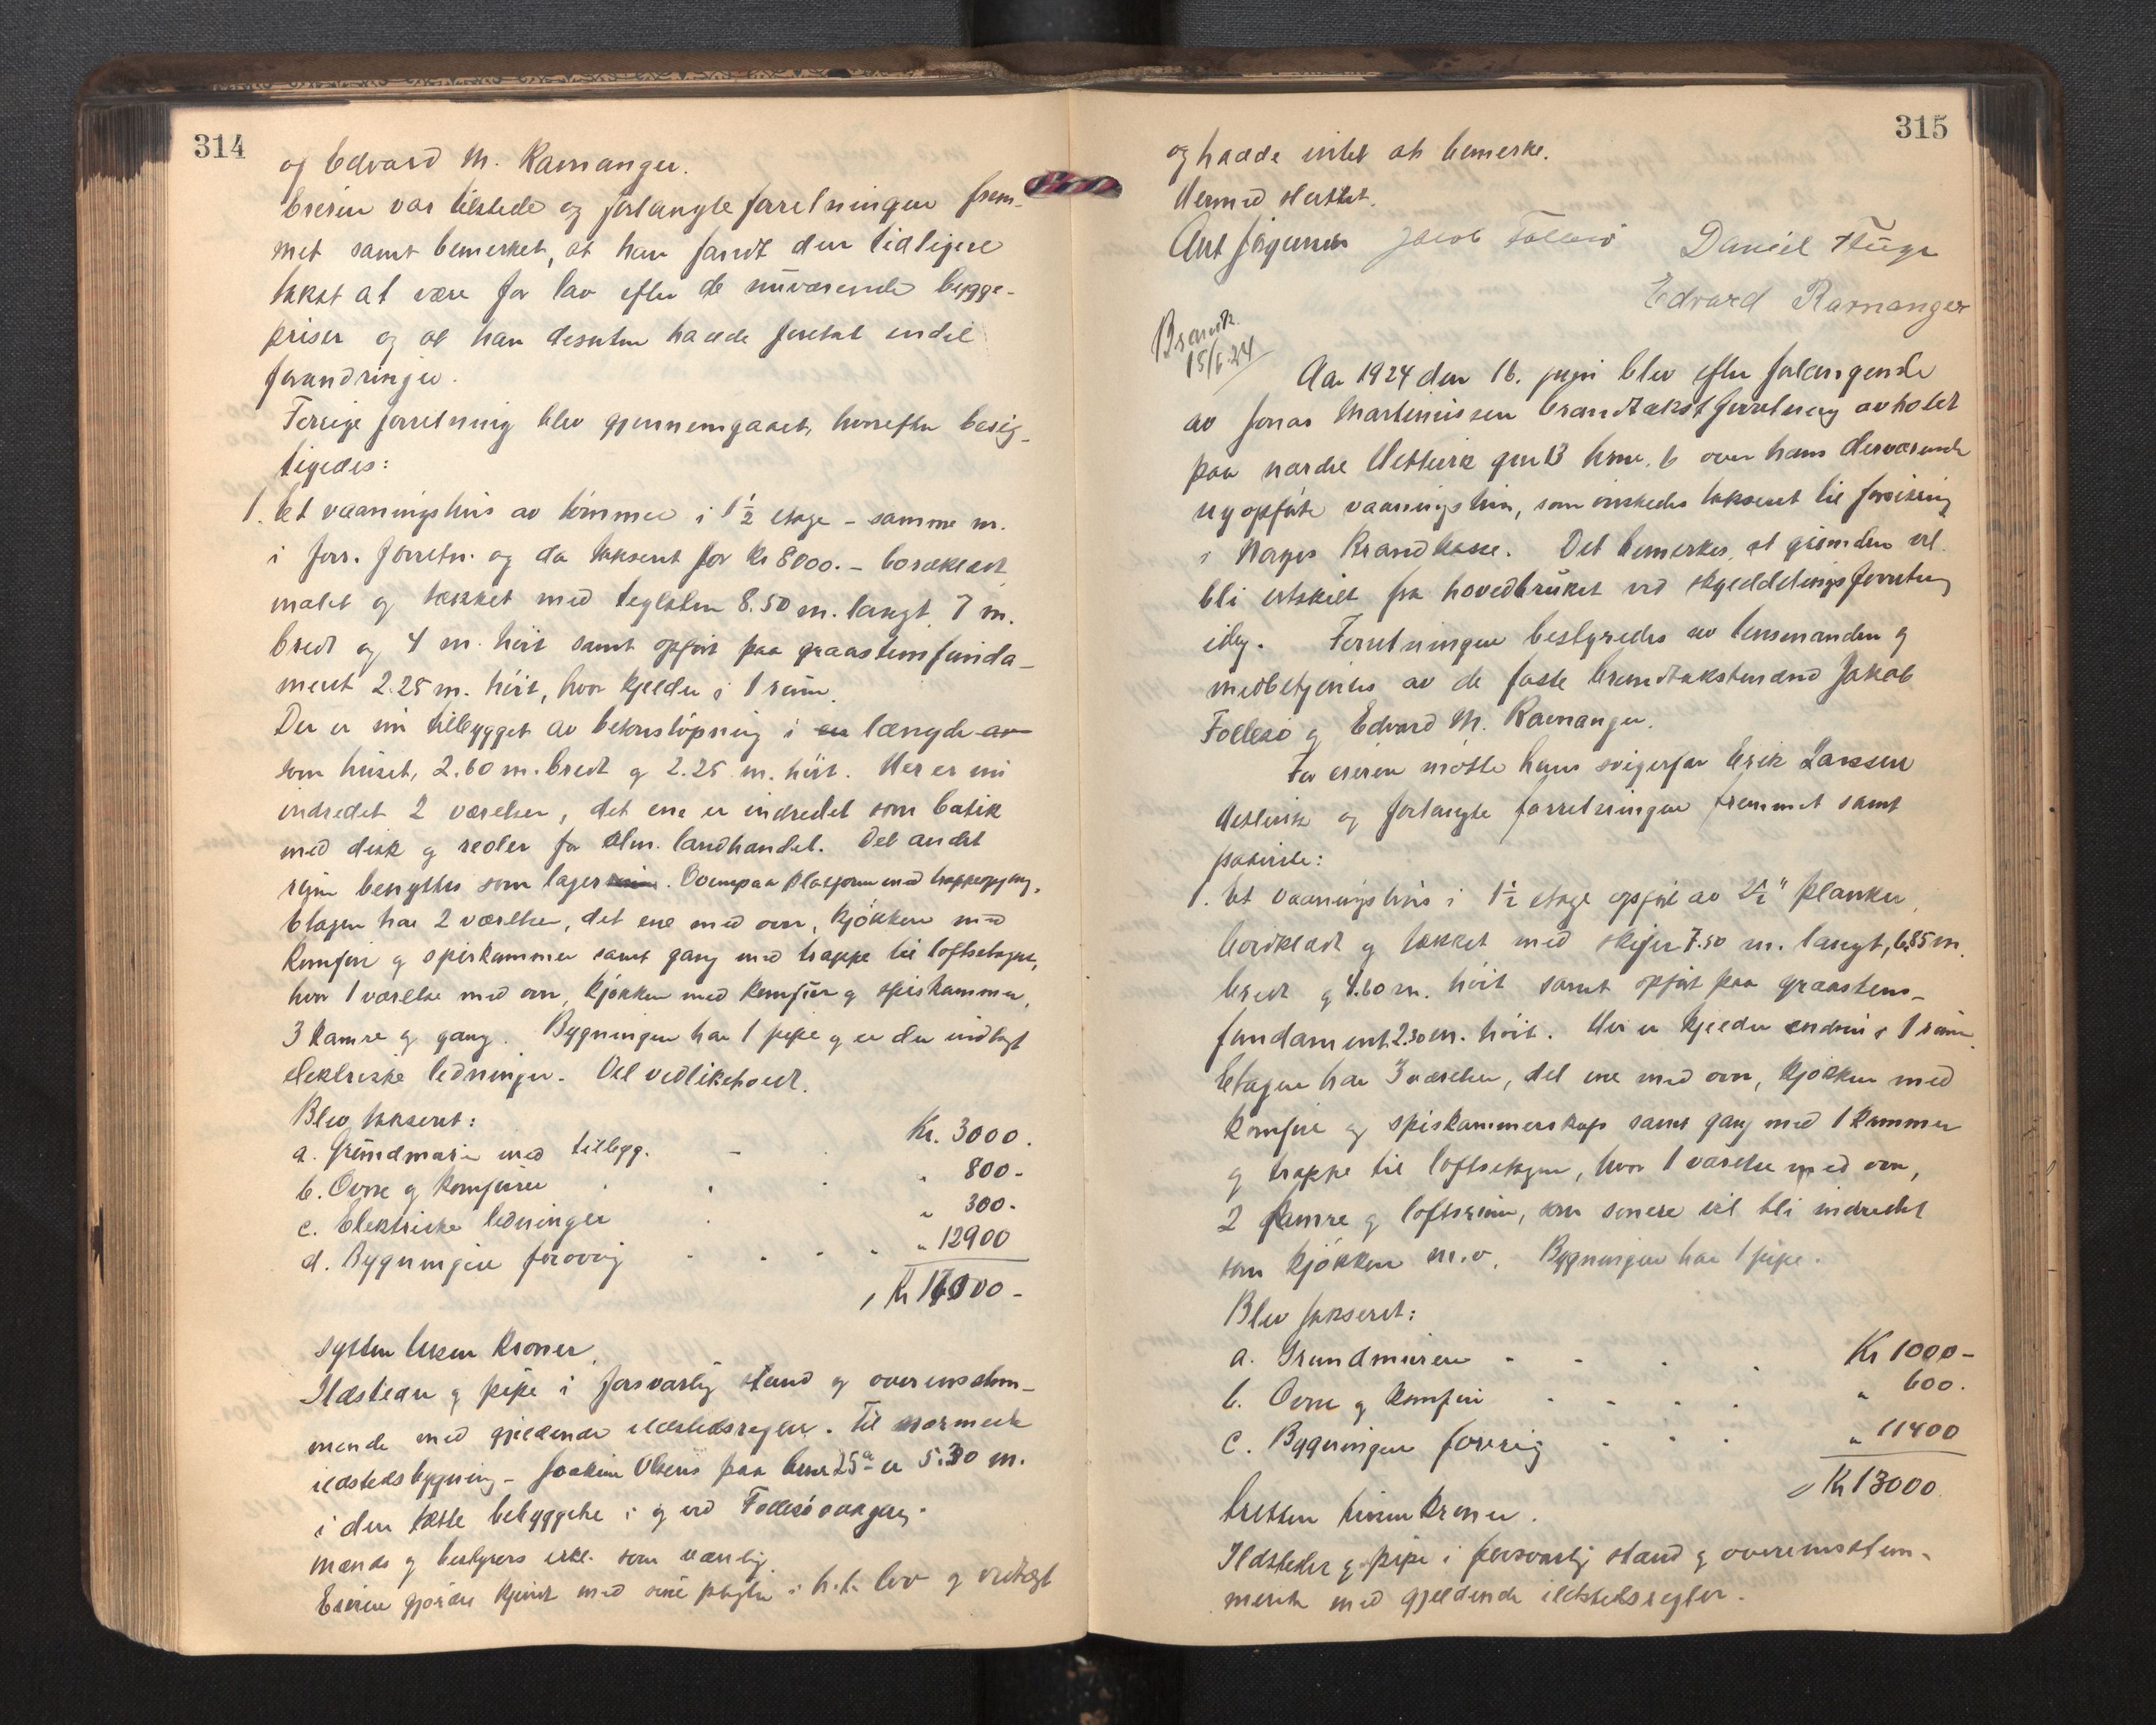 314
og Edvard M. Ramanger.
Eieren var tilstede og forlangte forretningen frem-
met samt bemerket, at han fandt den tidligere
takst at være for lav efter de nuværende bygge-
priser og at han desuten hadde foretat endel
forandringer.
Forrige forretning blev gjennemgaaet, hvorefter besig-
tigedes:
1. Et vaaningshus av tømmer i 1½ etage - samme m.
i forr. forretn. og da taksert for Kr 8000.- bordklædt
malet og tækket med teglsten 8.50 m. langt 7 m.
bredt og 4 m. høit samt opført paa graastensfunda-
ment 2.25 m. høit, hvor kjelder i 1 rum.
Der er nu tilbygget av betonstøpning i en længde av
som huset, 2.60 m. bredt og 2.25 m. høit. Her er nu
indredet 2 værelser, det ene er indredet som butik
med disk og reoler for alm. landhandel. Det andet
rum benyttes som lager. Ovenpaa Platform med trappeopgang.
Etagen har 2 værelser, det ene med ovn, kjøkken med
komfur og spiskammer samt gang med trappe til loftsetagen,
hvor 1 værelse med ovn, kjøkken med komfur og spiskammer,
3 kamre og gang. Bygningen har 1 pipe og er der indlagt
elektriske ledninger. Vel vedlikeholdt.
Blev taksert:
a. Grundmur med tillegg. - Kr. 3000.
b. Ovne og komfurer " 800-
c. Elektriske ledninger " 300-
d. Bygningen forøvrig " 12900
Kr 17000-
sytten tusen Kroner.
Ildsteder og pipe i forsvarlig stand og overensstem-
mende med gjeldende ildstedsregler. Til nærmeste
ildstedsbygning - Joakim Olsens paa bnr 25a er 5.30 m.
i den tætte bebyggelse i og ved Follesøvaagen.
mænds og bestyrers erkl. som vanlig.
Eieren gjordes kjendt med sine pligter i h.t. lov og vedtægt
315
og hadde intet at bemerke.
Hermed sluttet.
Ant Jørgensen Jacob Follesø Daniel Hauge
Edvard Ramanger
Brandt.
15/6.24
Aar 1924 den 16. juni blev efter forlangende
av Jonas Martinussen brandtakstforretning avholdt
paa nordre Hetlevik gnr 13 bnr. 6 over hans derværende
nyopførte vaaningshus, som ønskedes taksert til forsikring
i Norges Brandkasse. Det bemerkes, at grunden vil
bli utskilt fra hovedbruket ved skylddelingsforretning
idag. Forretningen bestyredes av lensmanden og
medbetjentes av de faste brandtakstmænd Jakob
Follesø og Edvard M. Ramanger.
For eieren møtte hans svigerfar Erik Larssen
Hetlevik og forlangte forretningen fremmet samt
paaviste:
1. Et vaaningshus i 1½ etage opført av 2½" planker,
bordklædt og tækket med skifer 7.50 m. langt, 6.85 m.
bredt og 4.60 m. høit samt opført paa graastens-
fundament 2.30 m. høit. Her er kjelder endnu i 1 rum.
Etagen har 3 værelser, det ene med ovn, kjøkken med
komfur og spiskammerskap samt gang med 1 kammer
og trappe til loftsetagen, hvor 1 værelse med ovn,
2 kamre og loftsrum, som senere vil bli indredet
som kjøkken m.v. Bygningen har 1 pipe.
Blev taksert:
a. Grundmuren - - Kr 1000-
b. Ovne og komfur - - " 600.
c. Bygningen forøvrig - - " 11400
Kr 13000
tretten tusen kroner.
Ildsteder og pipe i forsvarlig stand og overensstem-
mende med gjeldende ildstedsregler.